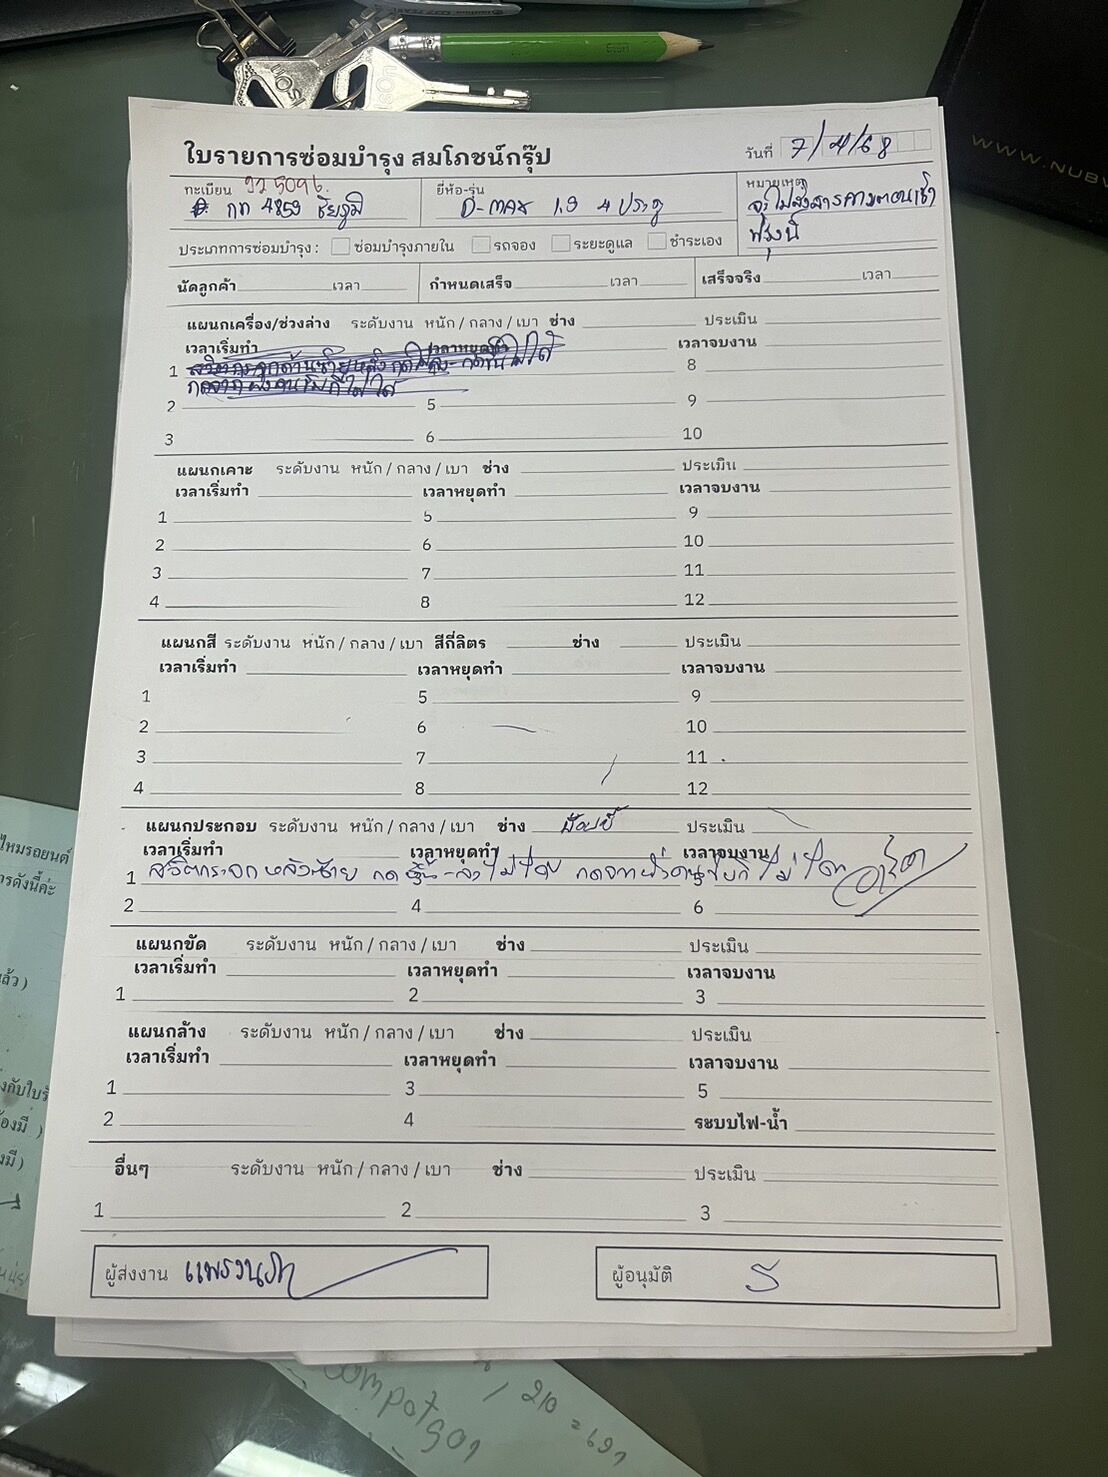 ใบรายการซ่อมบำรุง สมโภชน์กรุ๊ป
วันที่ 7/4/68
ทะเบียน 925096.
กท 4859 ชัยภูมิ
ยี่ห้อ-รุ่น
D-max 1.9 4 ประตู
หมายเหตุ
จะไปส่งสารคามตอนเช้า
พรุ่งนี้
ประเภทการซ่อมบำรุง : ซ่อมบำรุงภายใน รถจอง ระยะดูแล ชำระเอง
นัดลูกค้า เวลา กำหนดเสร็จ เวลา เสร็จจริง เวลา
แผนกเครื่อง/ช่วงล่าง ระดับงาน หนัก / กลาง / เบา ช่าง ประเมิน
เวลาเริ่มทำ เวลาหยุดทำ เวลาจบงาน
1 สวิตกระจกด้านซ้ายหลัง กดไม่ลง-กดขึ้นไม่ได้ 8
กดจากฝั่งคนขับก็ไม่ได้
2 5 9
3 6 10
แผนกเคาะ ระดับงาน หนัก / กลาง / เบา ช่าง ประเมิน
เวลาเริ่มทำ เวลาหยุดทำ เวลาจบงาน
1 5 9
2 6 10
3 7 11
4 8 12
แผนกสี ระดับงาน หนัก / กลาง / เบา สีกี่ลิตร ช่าง ประเมิน
เวลาเริ่มทำ เวลาหยุดทำ เวลาจบงาน
1 5 9
2 6 10
3 7 11
4 8 12
แผนกประกอบ ระดับงาน หนัก / กลาง / เบา ช่าง ประเมิน
เวลาเริ่มทำ เวลาหยุดทำ เวลาจบงาน
1 สวิตกระจกหลังซ้าย กดขึ้น-ลงไม่ได้ กดจากฝั่งคนขับก็ไม่ได้
2 4 6
แผนกขัด ระดับงาน หนัก / กลาง / เบา ช่าง ประเมิน
เวลาเริ่มทำ เวลาหยุดทำ เวลาจบงาน
1 2 3
แผนกล้าง ระดับงาน หนัก / กลาง / เบา ช่าง ประเมิน
เวลาเริ่มทำ เวลาหยุดทำ เวลาจบงาน
1 3 5
2 4 ระบบไฟ-น้ำ
อื่นๆ ระดับงาน หนัก / กลาง / เบา ช่าง ประเมิน
1 2 3
ผู้ส่งงาน แพรวนภา
ผู้อนุมัติ
WWW.NUBV
ไหมรถยนต์
ารดังนี้ค่ะ
210 = 691